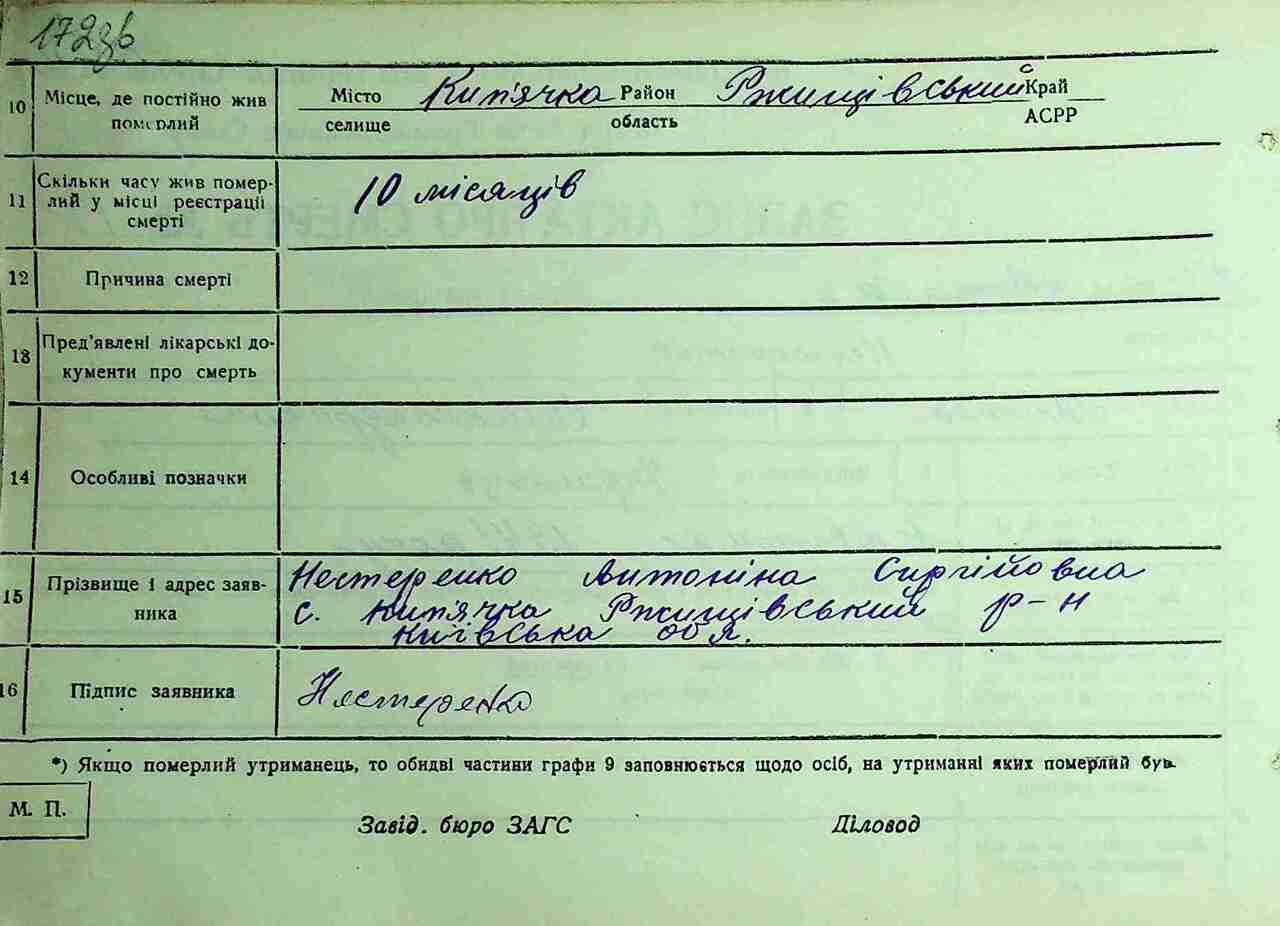 172зв
10 Місце, де постійно жив Місто Кип'ячка Район Ржищівський Край
померлий селище область АСРР
11 Скільки часу жив помер-
лий у місці реєстрації 10 місяців
смерті
12 Причина смерті
13 Пред'явлені лікарські до-
кументи про смерть
14 Особливі позначки
15 Прізвище і адрес заяв-
ника
Нестеренко Антоніна Сергійовна
с. Кип'ячка Ржищівський р-н
Київська обл.
16 Підпис заявника Нестеренко
*) Якщо померлий утриманець, то обидві частини графи 9 заповнюється щодо осіб, на утриманні яких померлий був.
М. П.
Завід. бюро ЗАГС Діловод